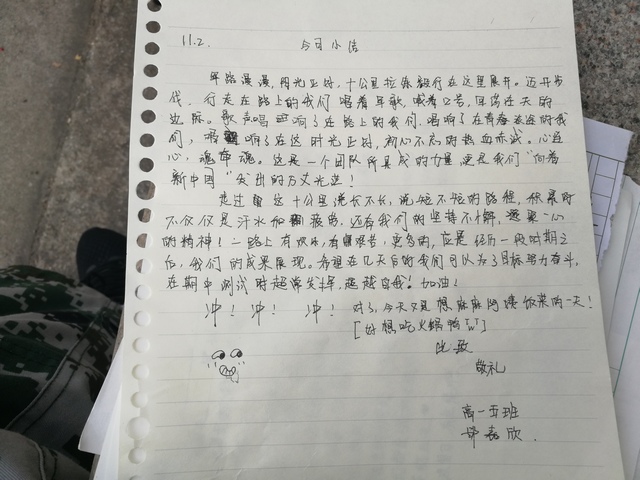 11.2. 今日小结
军路漫漫,阳光正好,十公里拉练毅行在这里展开。迈开步
伐,行走在路上的我们唱着军歌,喊着口号,回荡在天的
边际。歌声唱响了在路上的我们,唱响了在青春旅途的我
们,唱响了在这时光正好,初心不忘的热血赤诚。心连
心,魂牵魂。这是一个团队所具成的力量更是我们“向着
新中国”发出的万丈光芒!
走过这十公里说长不长,说短不短的路程,积累的
不仅仅是汗水和疲惫,还有我们的坚持不懈,凝聚一心
的精神!一路上有欢乐,有艰苦,更多的,应是经历一段时期之
后,我们的成果展现。希望在几天后的我们可以为了目标努力奋斗,
在期中测试时超常发挥,超越自我!加油!
冲!冲!冲!
对了,今天又是想麻麻阿姨饭菜的一天!
[好想吃火锅鸭]
此致
敬礼
高一五班
嘉欣.